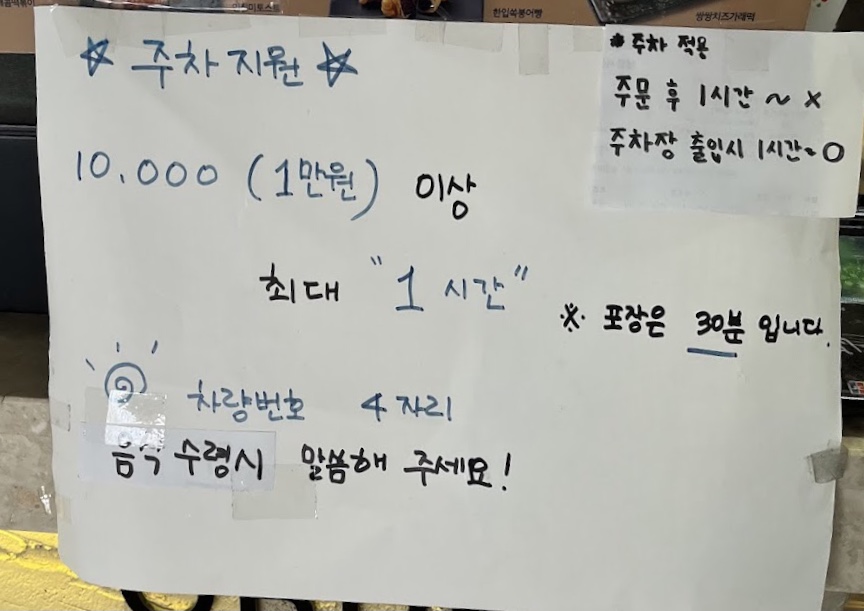 한입쏙붕어빵
쌍쌍치즈가래떡
☆ 주차 지원 ☆
* 주차 적용
주문 후 1시간 ~ X
주차장 출입시 1시간~ O
10.000 (1만원) 이상
최대 "1 시간"
※ 포장은 30분 입니다.
차량번호 4자리
음식 수령시 말씀해 주세요!